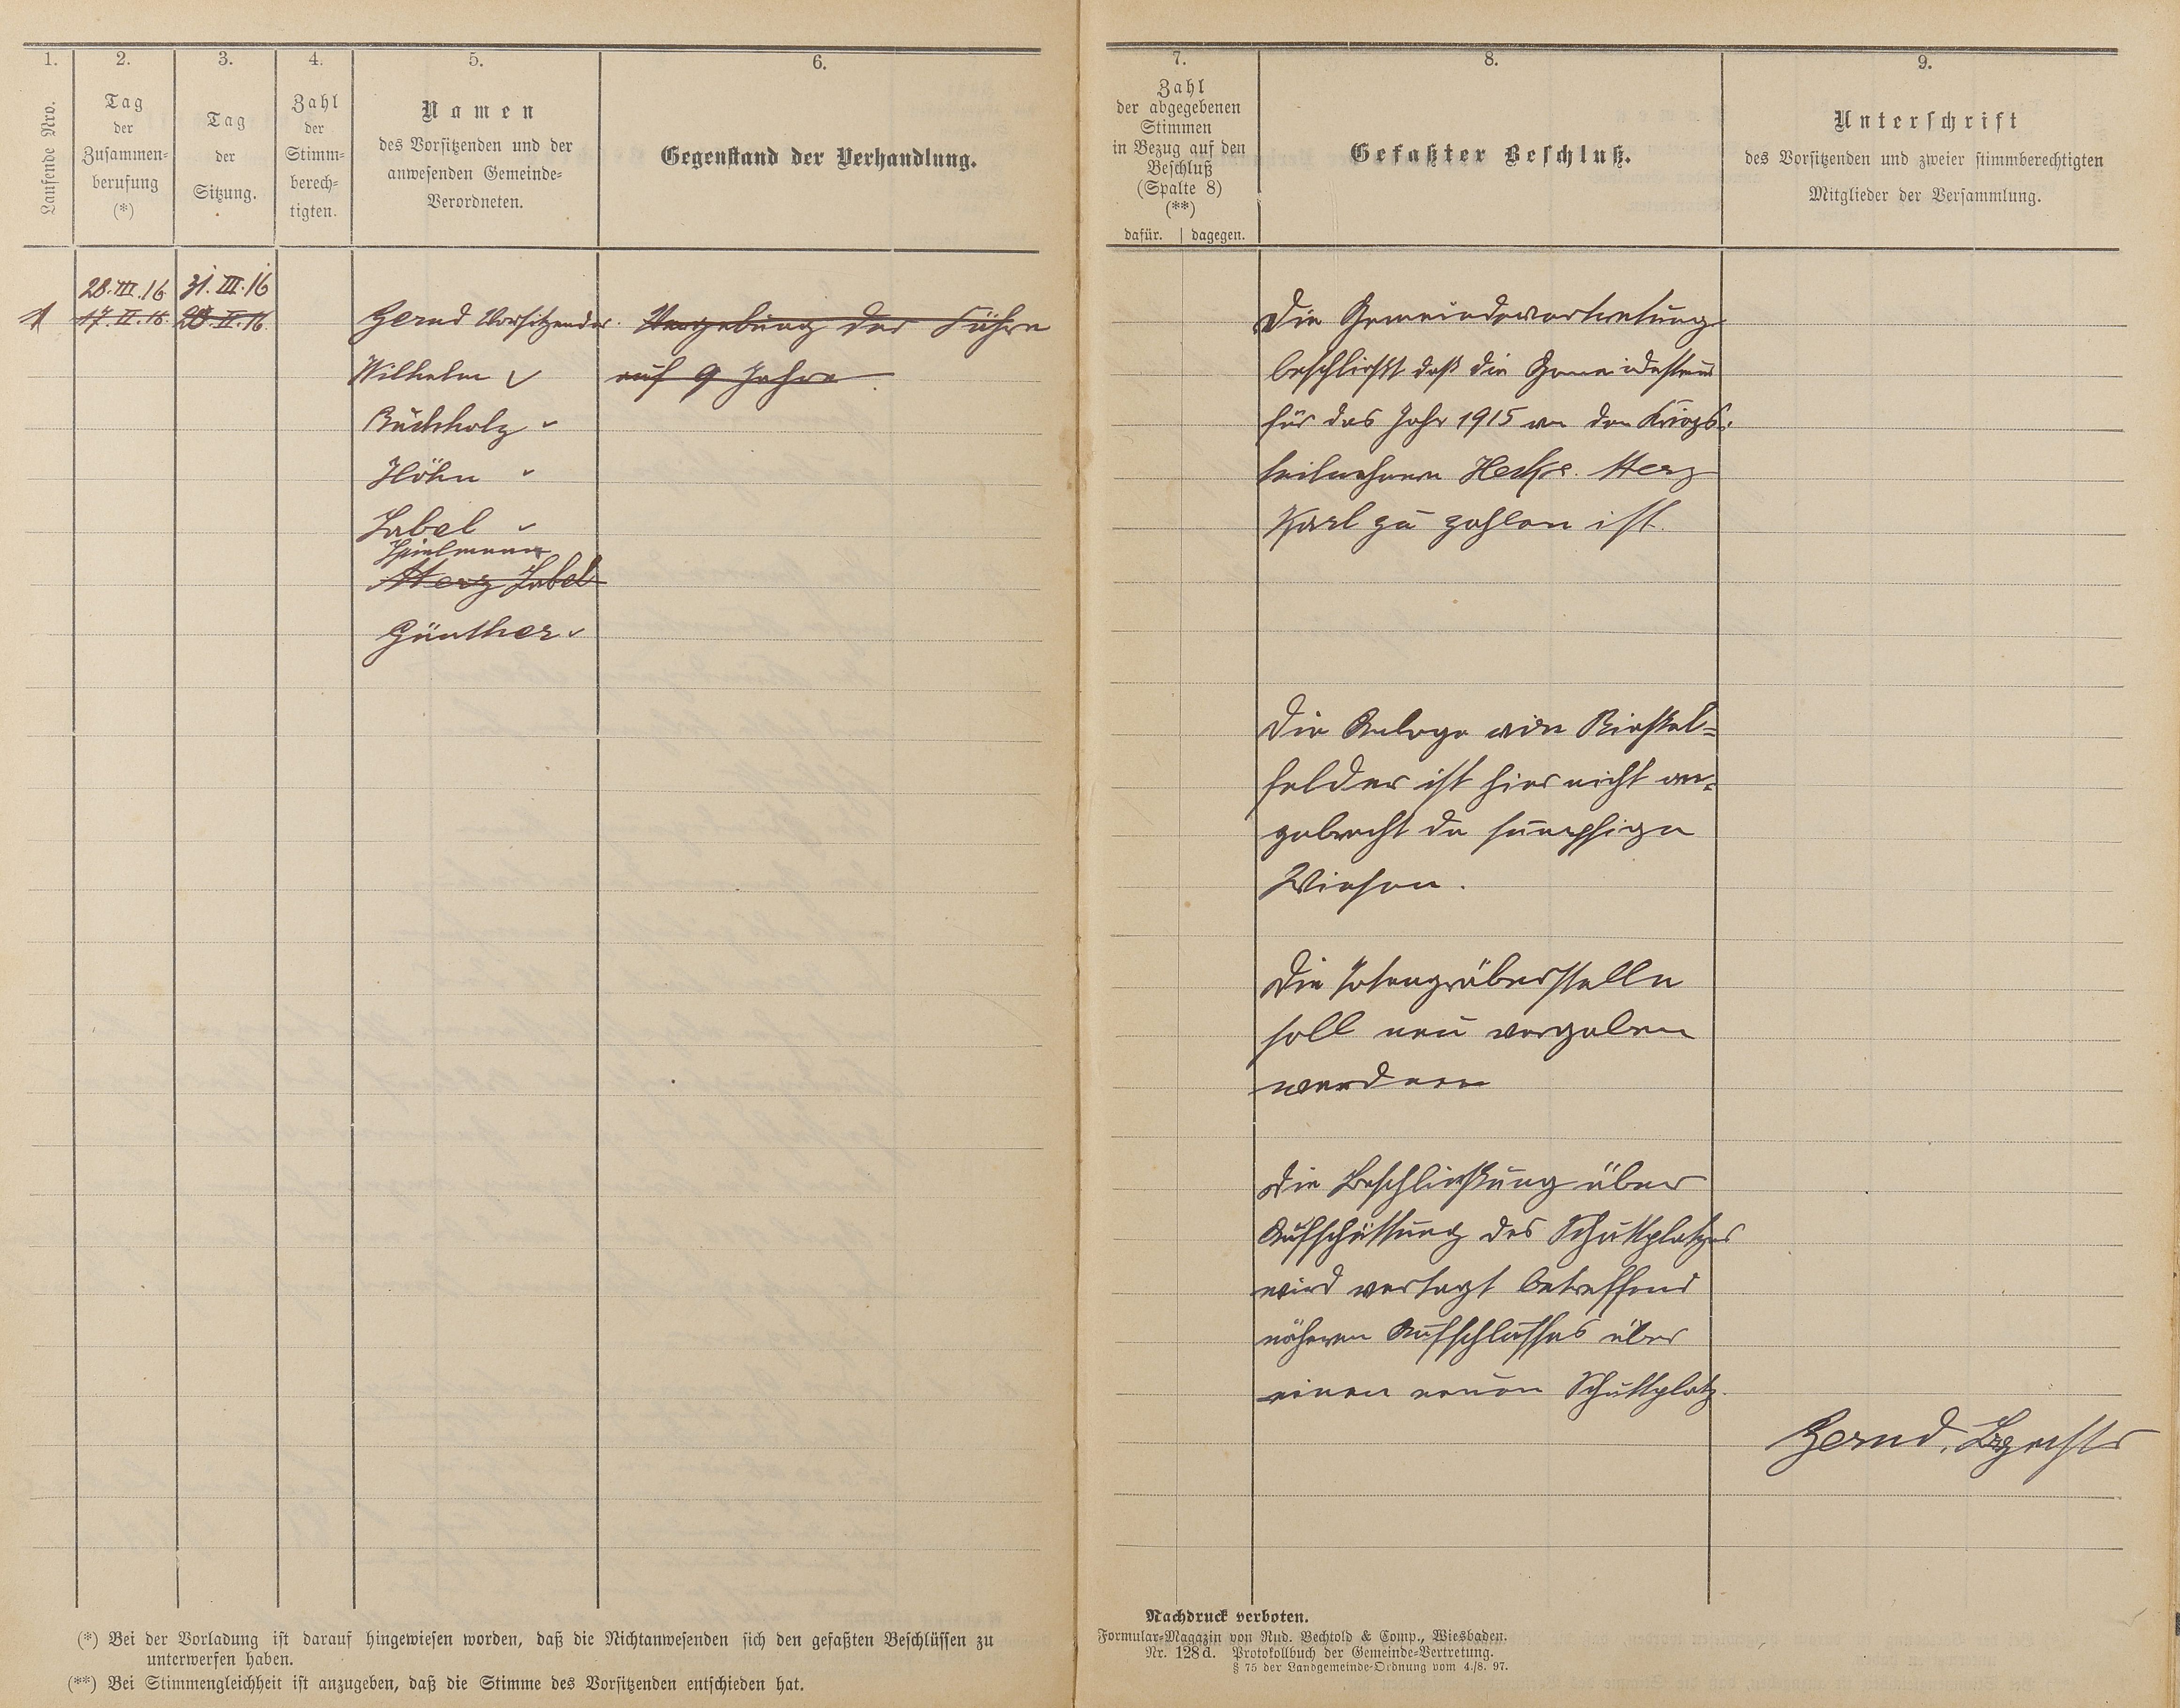 1.
Laufende Nro.
2.
Tag
der
Zusammen-
berufung
(*)
3.
Tag
der
Sitzung.
4.
Zahl
der
Stimm-
berech-
tigten.
5.
Namen
des Vorsitzenden und der
anwesenden Gemeinde-
Verordneten.
6.
Gegenstand der Verhandlung.
1
28.III.16
17.II.16.
31.III.16
20.II.16.
Gernd Vorsitzender.
Wilhelm
Buchholz
Höhn
Zabel
Spielmann
Herz Zabel
Günther
Vergebung der Fähre
auf 9 Jahre
(*) Bei der Vorladung ist darauf hingewiesen worden, daß die Nichtanwesenden sich den gefaßten Beschlüssen zu
unterwerfen haben.
(**) Bei Stimmengleichheit ist anzugeben, daß die Stimme des Vorsitzenden entschieden hat.
7.
Zahl
der abgegebenen
Stimmen
in Bezug auf den
Beschluß
(Spalte 8)
(**)
dafür. | dagegen.
8.
Gefaßter Beschluß.
9.
Unterschrift
des Vorsitzenden und zweier stimmberechtigten
Mitglieder der Versammlung.
Die Gemeindevertretung
beschließt daß die Gemeindesteuer
für das Jahr 1915 von den Kriegs-
teilnehmern Herz
Karl zu zahlen ist.
Die Anlage von
felder ist hier nicht an-
gebracht da sumpfige
Wiesen.
Die Totengräberstelle
soll neu vergeben
werden
Die Beschließung über
Aufschüttung des Schuttplatzes
wird vertagt betreffend
näheren Aufschlusses über
einen neuen Schuttplatz.
Gernd,
Nachdruck verboten.
Formular-Magazin von Rud. Bechtold & Comp., Wiesbaden.
Nr. 128d. Protokollbuch der Gemeinde-Vertretung.
§ 75 der Landgemeinde-Ordnung vom 4./8. 97.